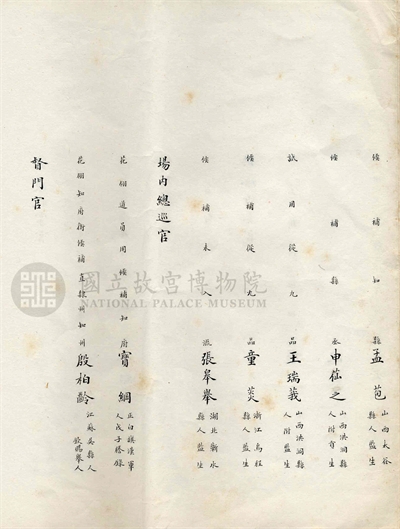 候補知縣孟苞 山西太谷縣人監生
候補縣丞申祜之 山西洪洞縣人附貢生
試用從九品王瑞羲 山西洪洞縣人附監生
候補從九品童焱 浙江烏程縣人監生
候補未入流張皋舉 湖北蘄水縣人監生
場內總巡官
花翎道員用候補知府寶綱 正白旗漢軍人戊子謄錄
花翎知府銜候補直隸州知州殷柏齡 江蘇吳縣人欽賜舉人
督門官
國立故宮博物院
NATIONAL PALACE MUSEUM